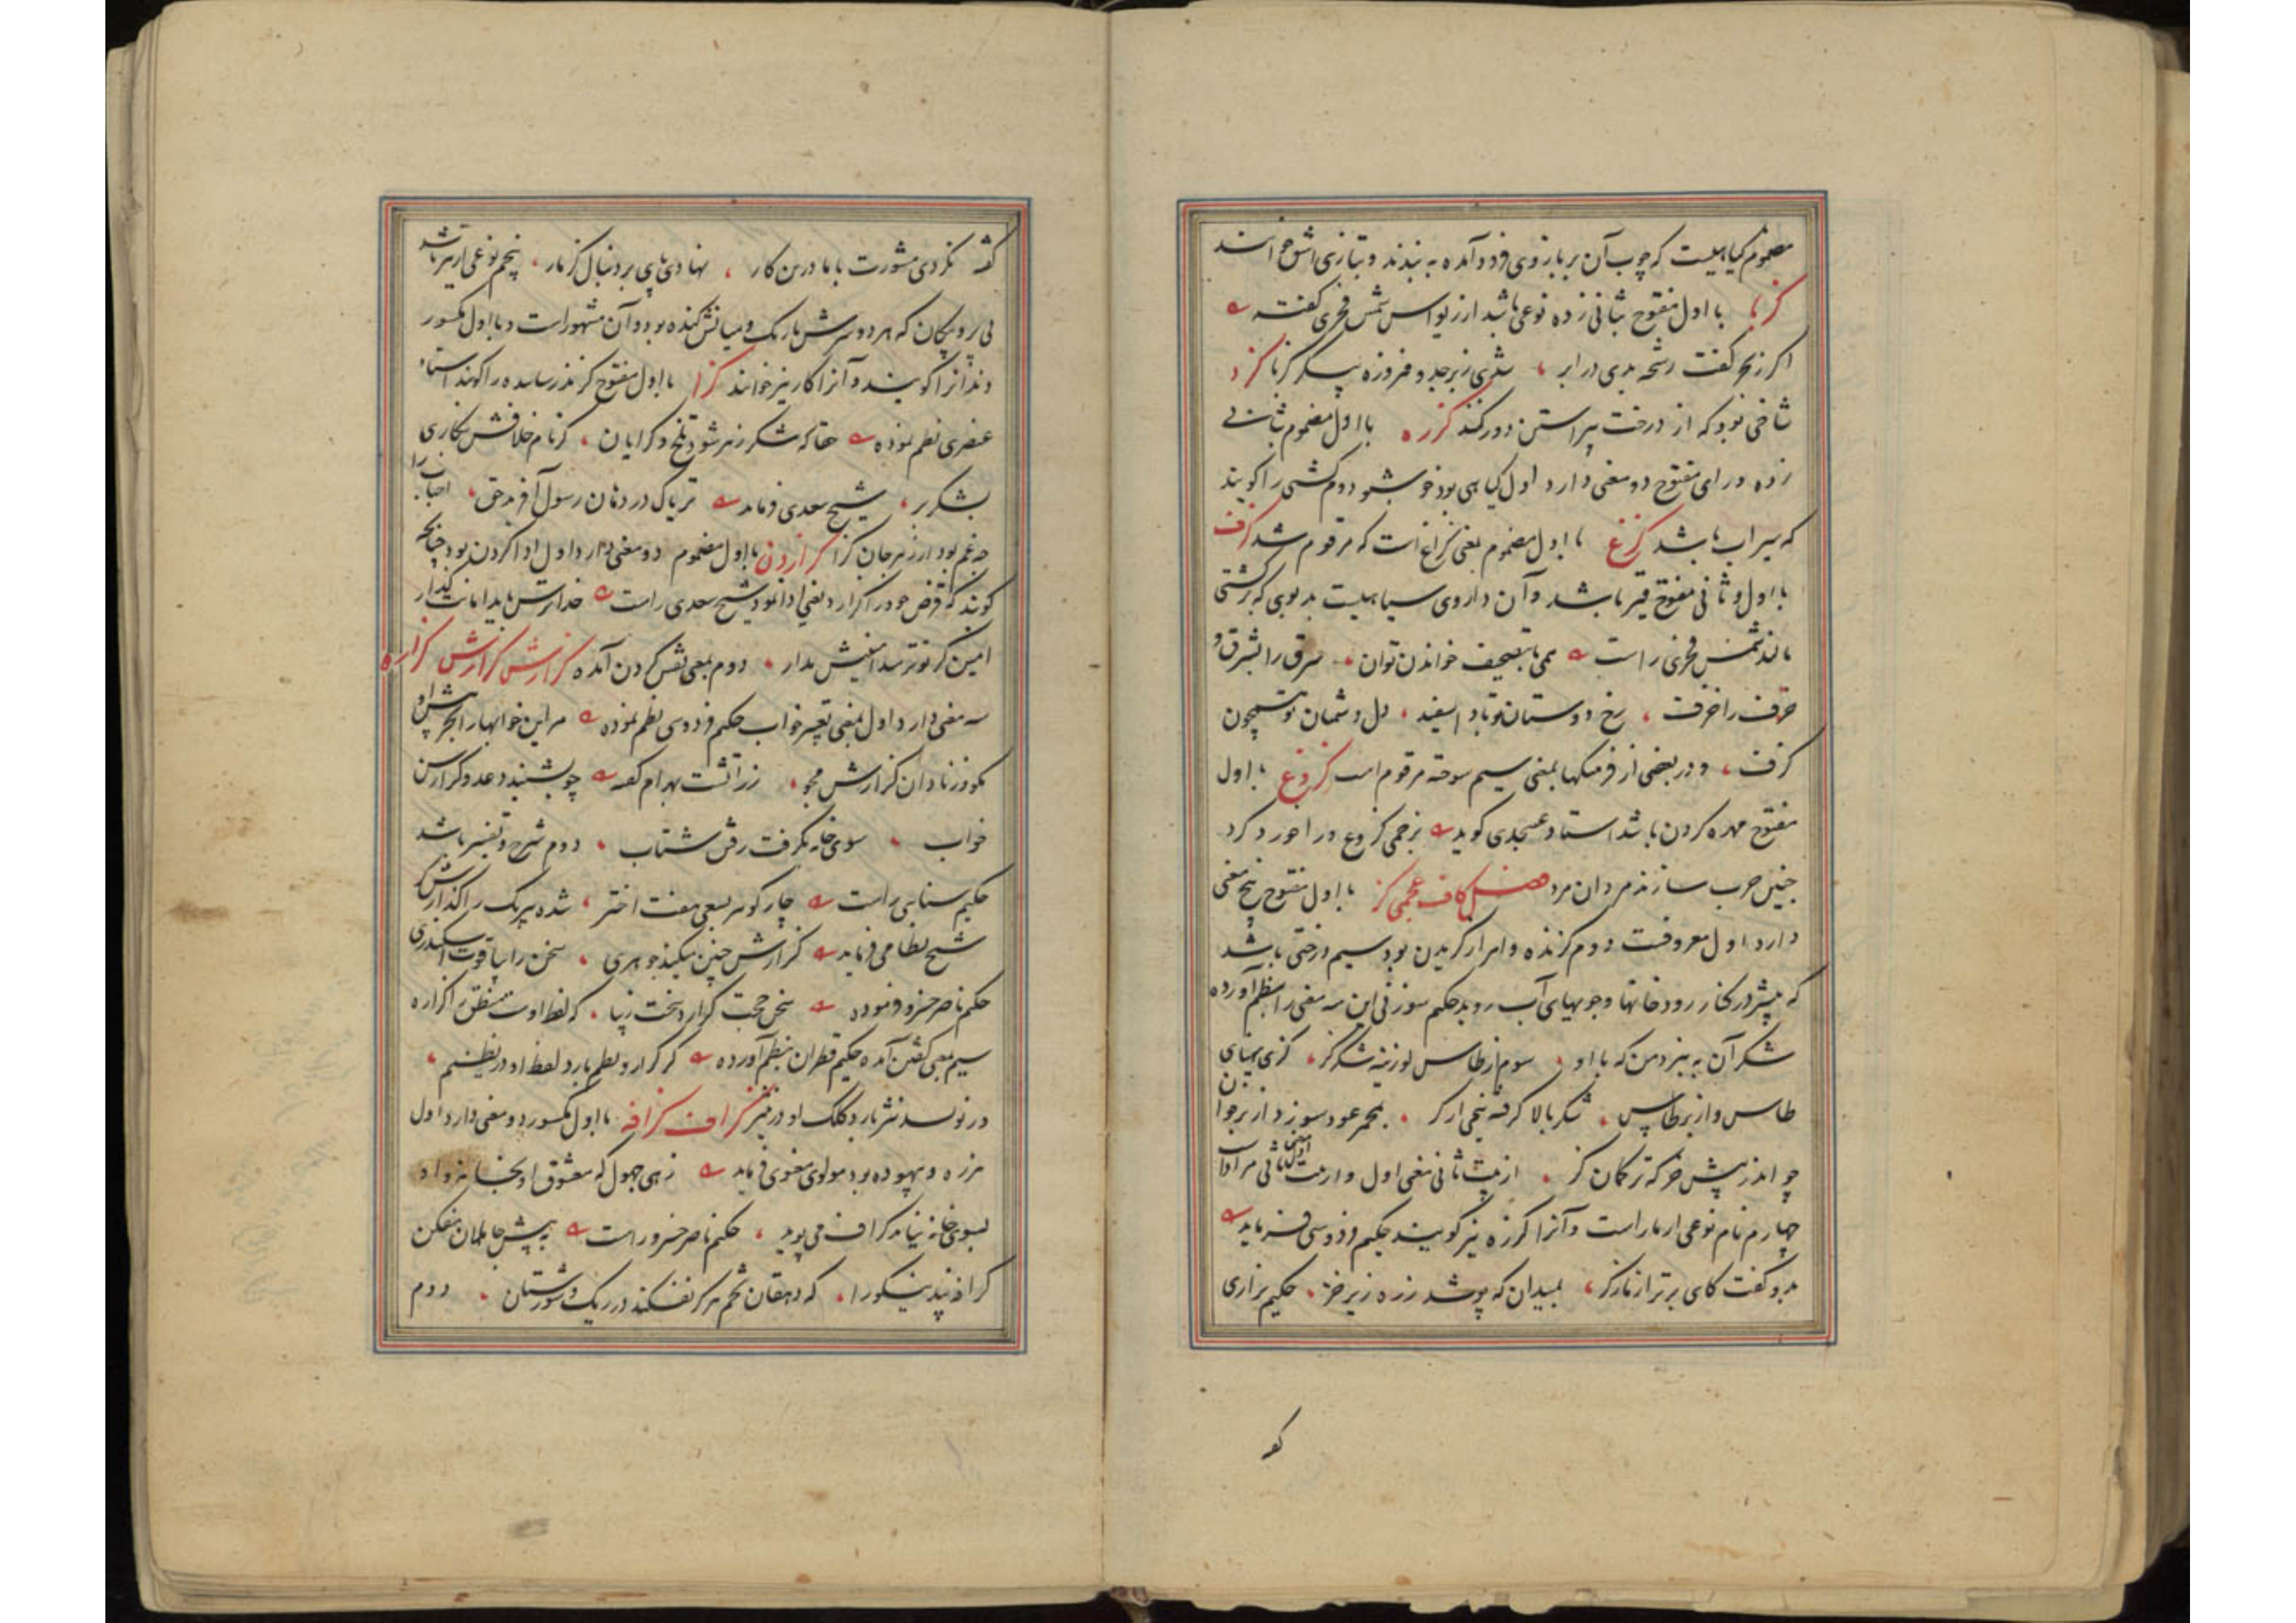 مضموم کیاهیست که چوب آن بر بازوی فرود آمده به بندند و بتازی اشق خوانند
کزبا با اول مفتوح بثانی زده نوعی باشد از ریواس شمس فخری گفته
اگر زبحر کفت رشحه بری در ابر ، شری زبرجد و فیروزه پیکر کزبا کزد
شاخی بود که از درخت پیراستن دور کنند کزره با اول مضموم بثانی
زده و رای مفتوح دو معنی دارد اول کیاهی بود خوشبو دوم کشتی را کویند
که سیراب باشد کزغ با اول مضموم بمعنی کزاغ است که مرقوم شد کزف
با اول و ثانی مفتوح قیر باشد و آن داروی سیاهیست بدبوی که بر کشتی
مالند شمس فخری راست همی بتصحیف خواندن توان ، سرق را شرق و
حرف را خرفت ، رخ دوستان تو باد اسفید ، دل دشمنان تو همچون
کزف ، و در بعضی از فرهنکها بمعنی سیم سوخته مرقوم است کزوغ با اول
مفتوح مهره کردن باشد استاد عسجدی کوید بزخمی کزوغ ورا خورد کرد
چنین حرب سازند مردان مرد فصل کاف عجمی کز با اول مفتوح پنج معنی
دارد اول معروفست دوم کزنده و امر از کزیدن بود سیم درختی باشد
که بیشتر در کنار رودخانها و جویهای آب روید حکیم سوزنی این سه معنی را بنظم آورده
شکر آن به بیزد من که با او ، سوم از طاس لوزینه شکر کز ، کزی پهنای
طاس و از بر طاس ، شکر بالا کرفته نیمی از کز ، بمجمر عود سوزد از بر خوان
چو اندر پیش خرکه ترکمان کز ، از بیت ثانی معنی اول و از بیت ثانی مراد است
چهارم نام نوعی از مار است و آنرا کرزه نیز کویند حکیم فردوسی فرماید
بدو کفت کای برتر از مار کز ، بمیدان که پوشد زره زیر خز ، حکیم نزاری
گفته نکردی مشورت با ما درین کار ، نهادی پای بر دنبال کز مار ، پنجم نوعی از تیر باشد
بی پر و پیکان که هر دو سرش باریک و میانش کنده بود و آن مشهور است و با اول مکسور
دندانرا کویند و آنرا کاز نیز خوانند کزا با اول مفتوح کزند رساننده را کویند استاد
عنصری نظم نموده حقا که شکر زهر شود تلخ و کزایان ، کر نام خلافش بنکاری
بشکر بر ، شیخ سعدی فرماید تریاک در دهان رسول آفرید حق ، احباب را
چه غم بود از زهر جان کزا کزاردن با اول مضموم دو معنی دارد اول ادا کردن بود چنانچه
کویند که قرض خود را کزارد یعنی ادا نمود شیخ سعدی راست خدا ترس باید امانت کذار
امین کز تو ترسد امینش مدار ، دوم بمعنی نقش کردن آمده کزارش کزارش کزاره
سه معنی دارد اول بمعنی تعبیر خواب حکیم فردوسی نظم نموده مر این خوابها را بجز پیش او
مکو وز نادان کزارش مجو ، زراتشت بهرام کفته چو بشنید دغدو کزارش
خواب ، سوی خانه بکرفت رفتن شتاب ، دوم شرح و تفسیر باشد
حکیم سنایی راست چار کوهر بسعی هفت اختر ، شده بیرنک را کذارش کر
شیخ نظامی فرماید کزارش چنین میکند جوهری ، سخن را بیاقوت اسکندری
حکیم ناصر خسرو فرموده سخن حجت کزارد سخت زیبا ، که لفظ اوست منطق را کزاره
سیم بمعنی کفتن آمده حکیم قطران بنظم آورده کر کزارد نظم بارد لفظ او در نظم ،
در نویسد نثر بارد کلک او در نثر کزاف کزافه با اول مکسور دو معنی دارد اول
هرزه و بیهوده بود مولوی معنوی فرماید زهی جهول که معشوق او بخانه و او
بسوی خانه نیاید کزاف می پوید ، حکیم ناصر خسرو راست به پیش جاهلان مفکن
کزافه پند نیکو را ، که دهقان تخم هرکز نفکند در ریک و شورستان ، دوم